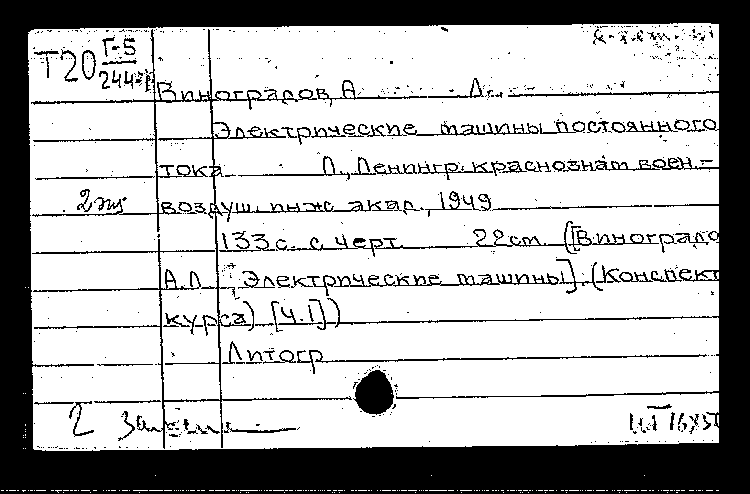 Т20 Г-5
Виноградов, А Л.
Электрические машины постоянного
тока Л., Ленингр. краснознам воен.-
2 экз воздуш. инж акад., 1949
133 с. с черт. 22 см. ([Виноградо
А.Л Электрические машины]. (Конспект
курса) [Ч.I])
Литогр
2